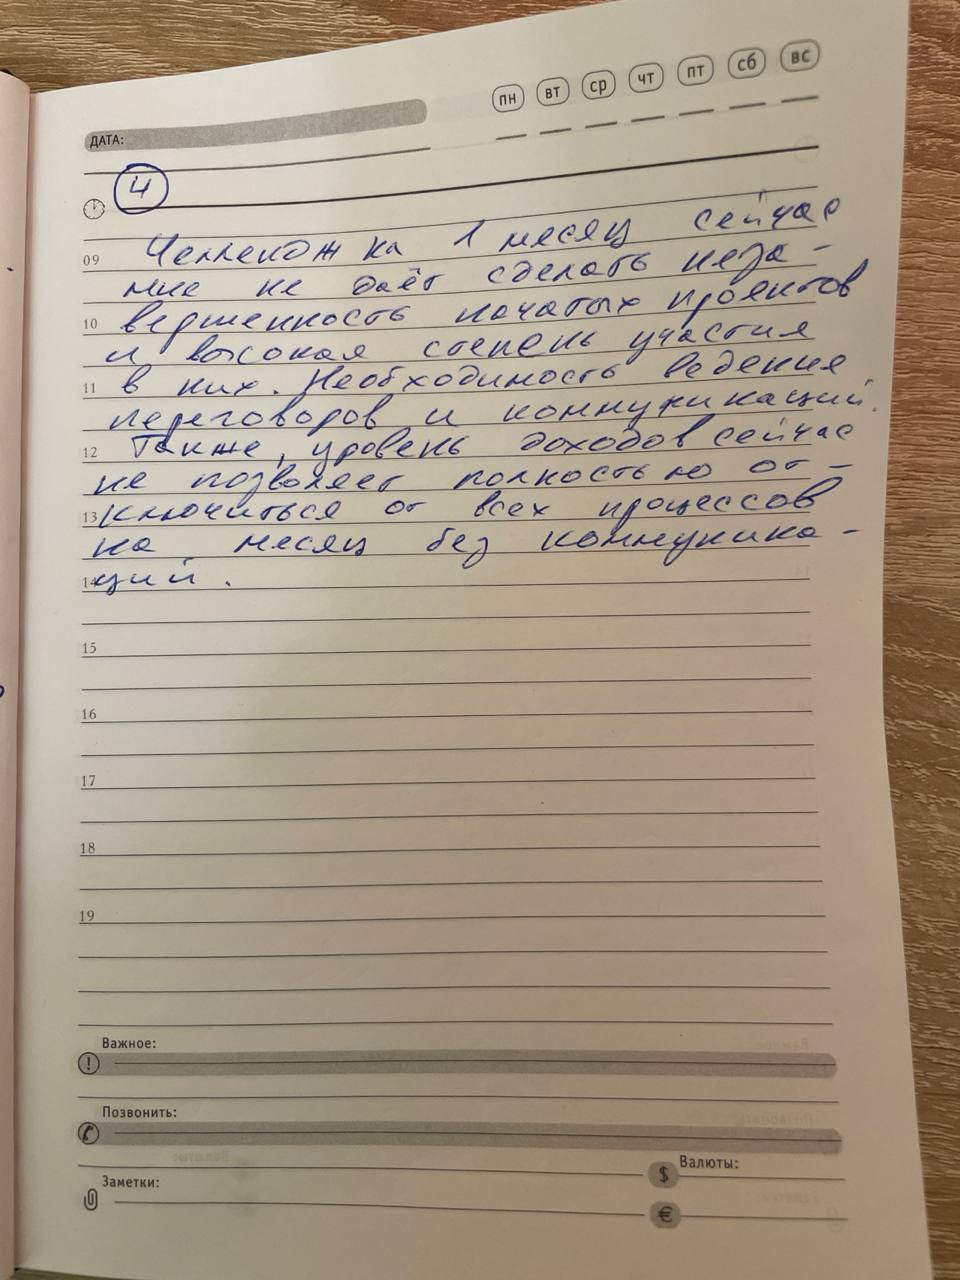 пн вт ср чт пт сб вс
ДАТА:
4
Челлендж на 1 месяц сейчас
09
мне не даёт сделать неза-
10 вершенность начатых проектов
и высокая степень участия
11 в них. Необходимость ведения
переговоров и коммуникаций.
12 Также, уровень доходов сейчас
не позволяет полностью от-
13 ключиться от всех процессов
на месяц без коммуника-
14 ций.
15
16
17
18
19
Важное:
!
Позвонить:
Валюты:
$
Заметки:
€